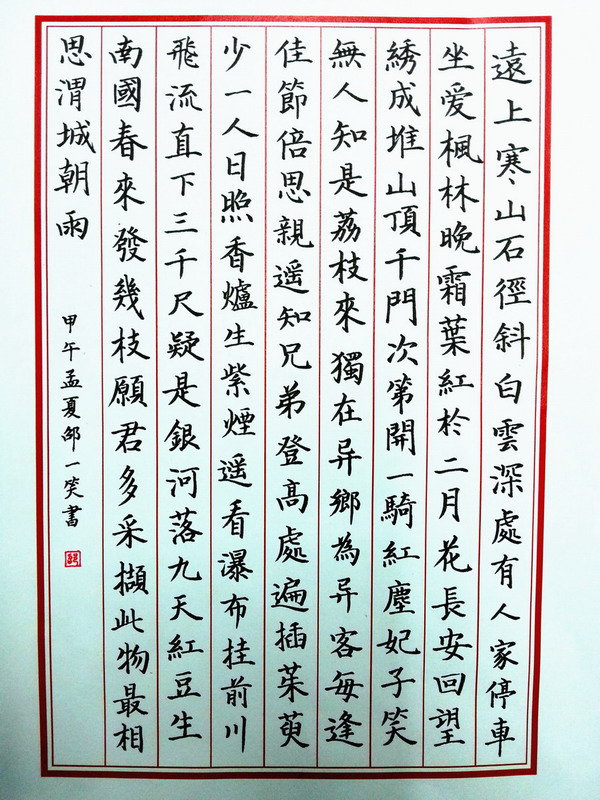 遠上寒山石徑斜白雲深處有人家停車
坐爱楓林晚霜葉紅於二月花長安回望
綉成堆山頂千門次第開一騎紅塵妃子笑
無人知是荔枝來獨在异鄉為异客每逢
佳節倍思親遥知兄弟登高處遍插茱萸
少一人日照香爐生紫煙遥看瀑布挂前川
飛流直下三千尺疑是銀河落九天紅豆生
南國春來發幾枝願君多采擷此物最相
思渭城朝雨
甲午孟夏邵一笑書